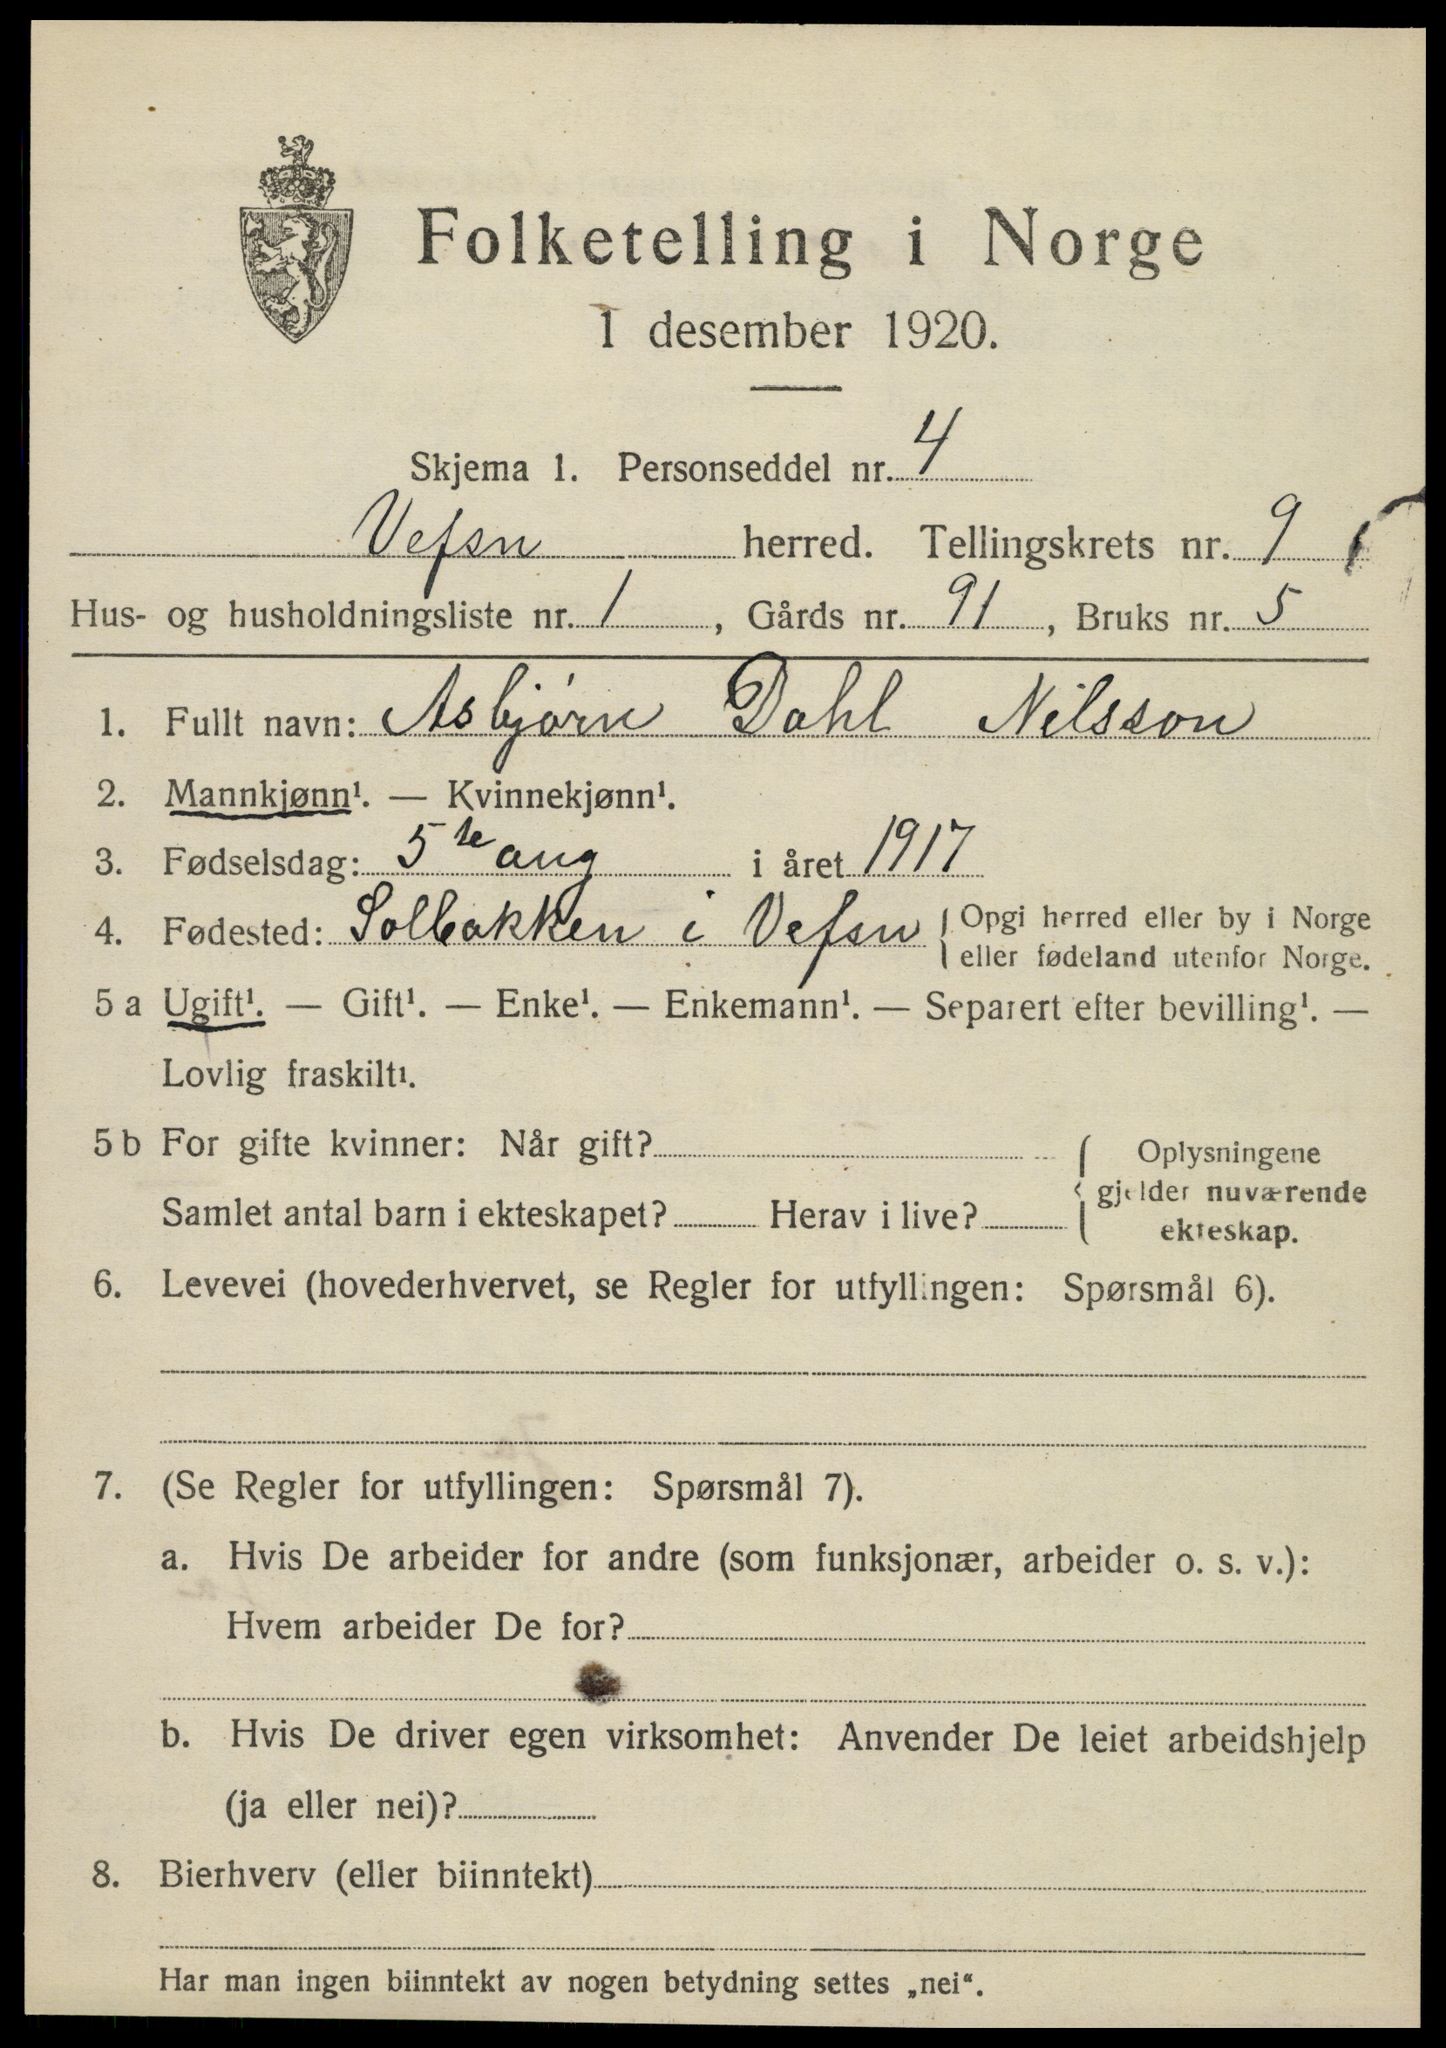 Folketelling i Norge
1 desember 1920.
Skjema 1. Personseddel nr. 4
Vefsn herred. Tellingskrets nr. 9
Hus- og husholdningsliste nr. 1, Gårds nr. 91, Bruks nr. 5
1. Fullt navn: Asbjörn Dahl Nilsson
2. Mannkjønn¹. — Kvinnekjønn¹.
3. Fødselsdag: 5te aug i året 1917
4. Fødested: Solbakken i Vefsn { Opgi herred eller by i Norge
eller fødeland utenfor Norge.
5 a Ugift¹. — Gift¹. — Enke¹. — Enkemann¹. — Separert efter bevilling¹. —
Lovlig fraskilt¹.
5 b For gifte kvinner: Når gift? { Oplysningene
gjelder nuværende
Samlet antal barn i ekteskapet? Herav i live?
ekteskap.
6. Levevei (hovederhvervet, se Regler for utfyllingen: Spørsmål 6).
7. (Se Regler for utfyllingen: Spørsmål 7).
a. Hvis De arbeider for andre (som funksjonær, arbeider o. s. v.):
Hvem arbeider De for?
b. Hvis De driver egen virksomhet: Anvender De leiet arbeidshjelp
(ja eller nei)?
8. Bierhverv (eller biinntekt)
Har man ingen biinntekt av nogen betydning settes „nei“.